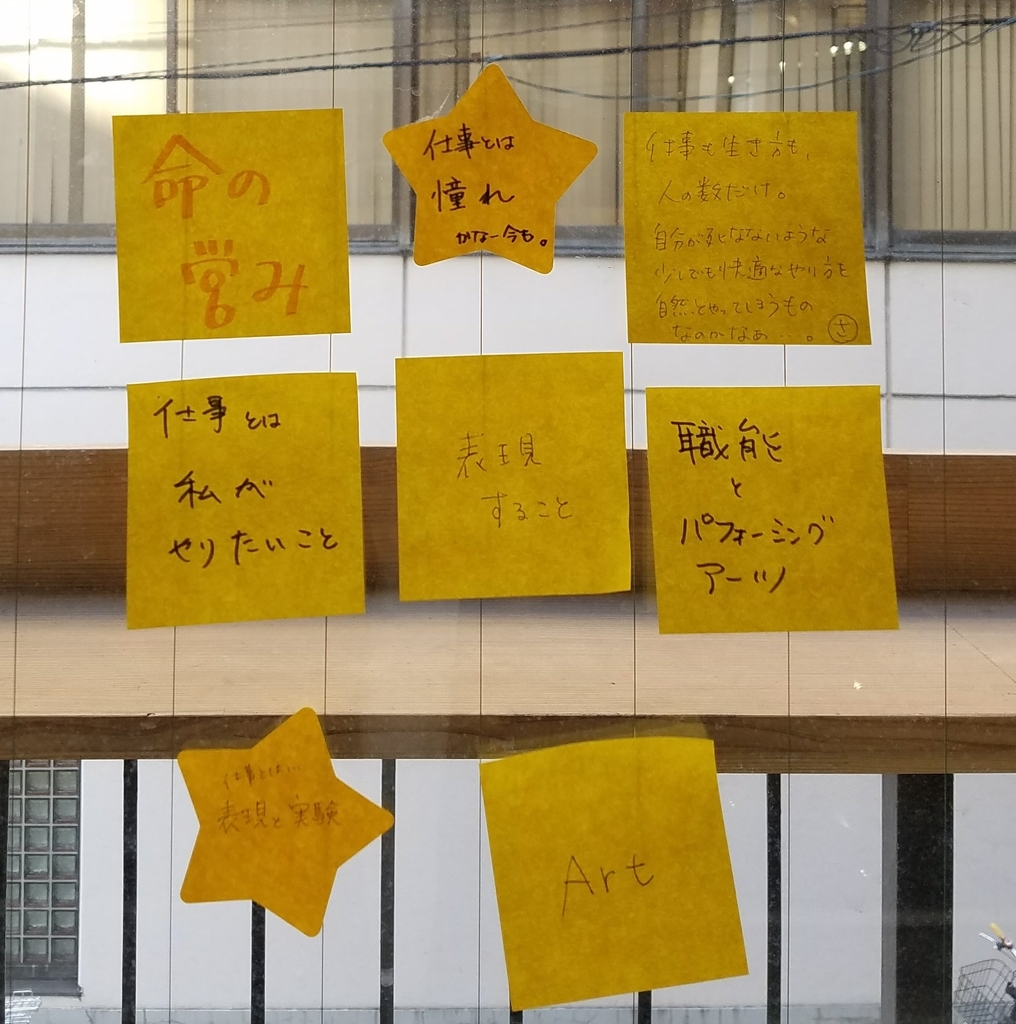 命の
営み
仕事とは
憧れ
かなー今も。
仕事も生き方も、
人の数だけ。
自分が死なないような
少しでも快適なやり方を
自然とやってしまうもの
なのかなぁ…。
さ
仕事とは
私が
やりたいこと
表現
すること
職能
と
パフォーミング
アーツ
仕事とは…
表現と実験
Art